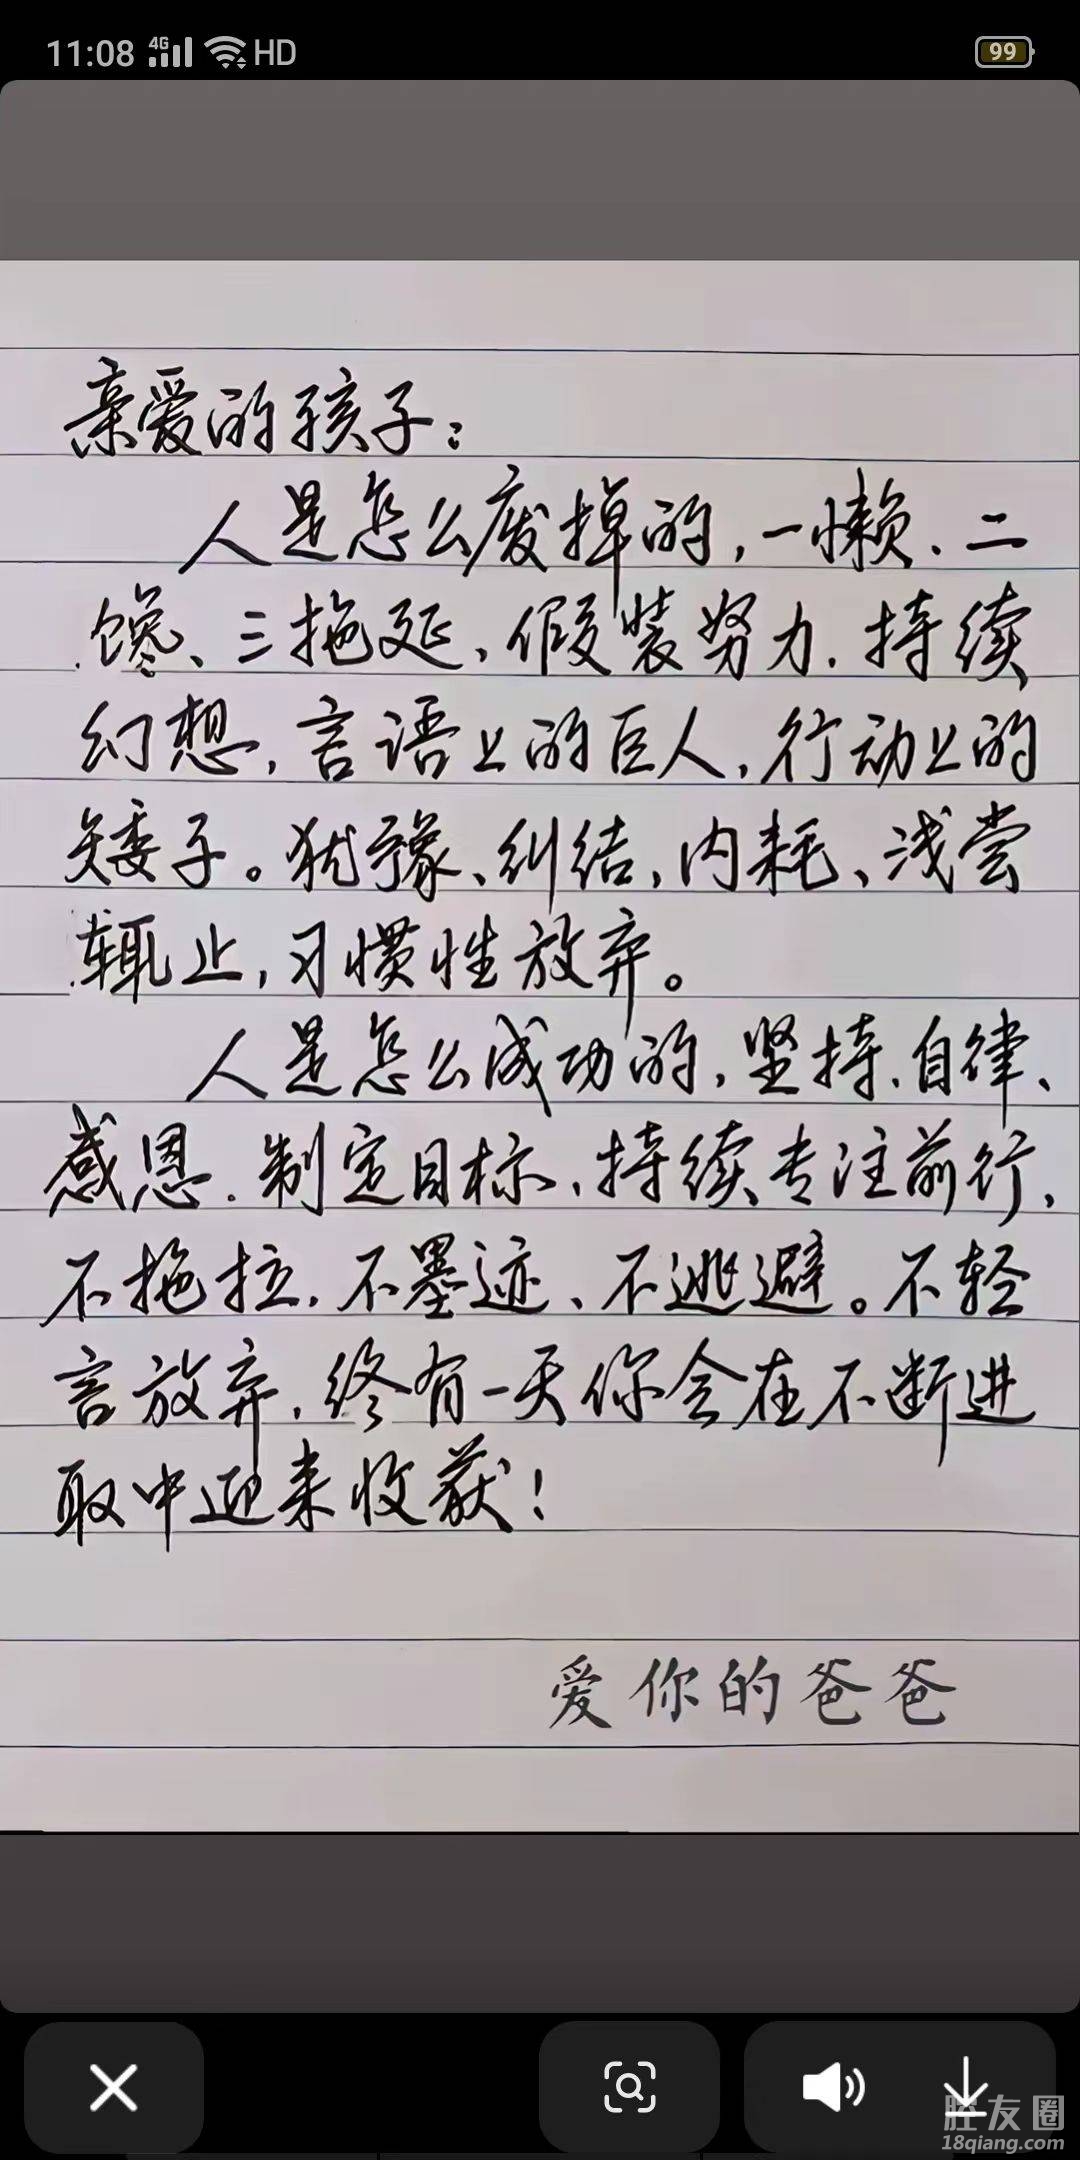 11:08 4G HD 99
亲爱的孩子：
人是怎么废掉的，一懒、二
馋、三拖延、假装努力、持续
幻想，言语上的巨人，行动上的
矮子。犹豫、纠结，内耗、浅尝
辄止，习惯性放弃。
人是怎么成功的，坚持、自律、
感恩、制定目标、持续专注前行，
不拖拉、不墨迹、不逃避。不轻
言放弃，终有一天你会在不断进
取中迎来收获！
爱你的爸爸
胜友圈
18qiang.com